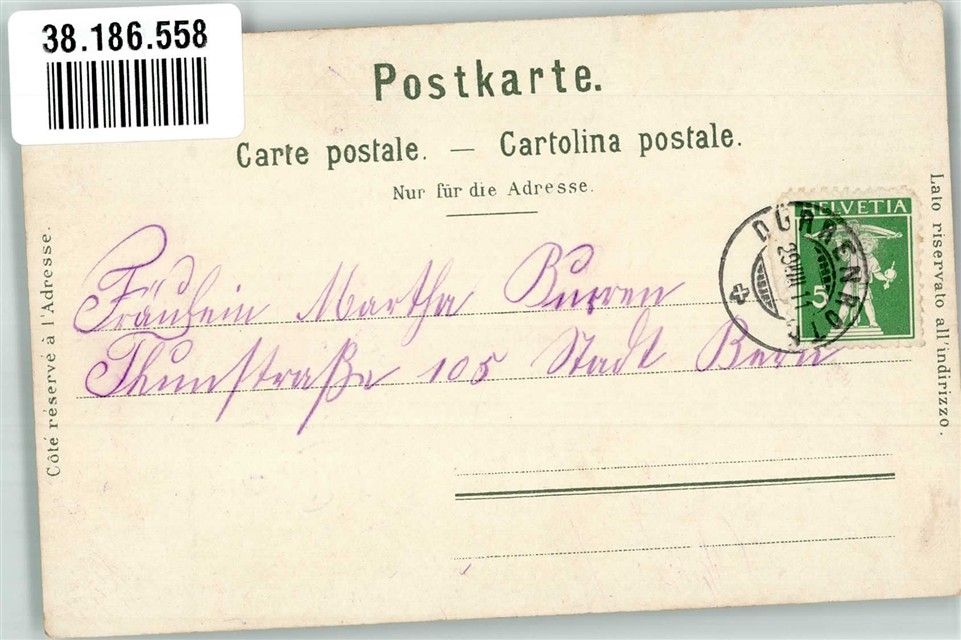 38.186.558
Postkarte.
Carte postale. — Cartolina postale.
Nur für die Adresse.
Côté réservé à l'Adresse.
Lato riservato all'indirizzo.
HELVETIA
5
DÜRRENROTH
Fräulein Martha Burren
Thunstraße 105 Stadt Bern